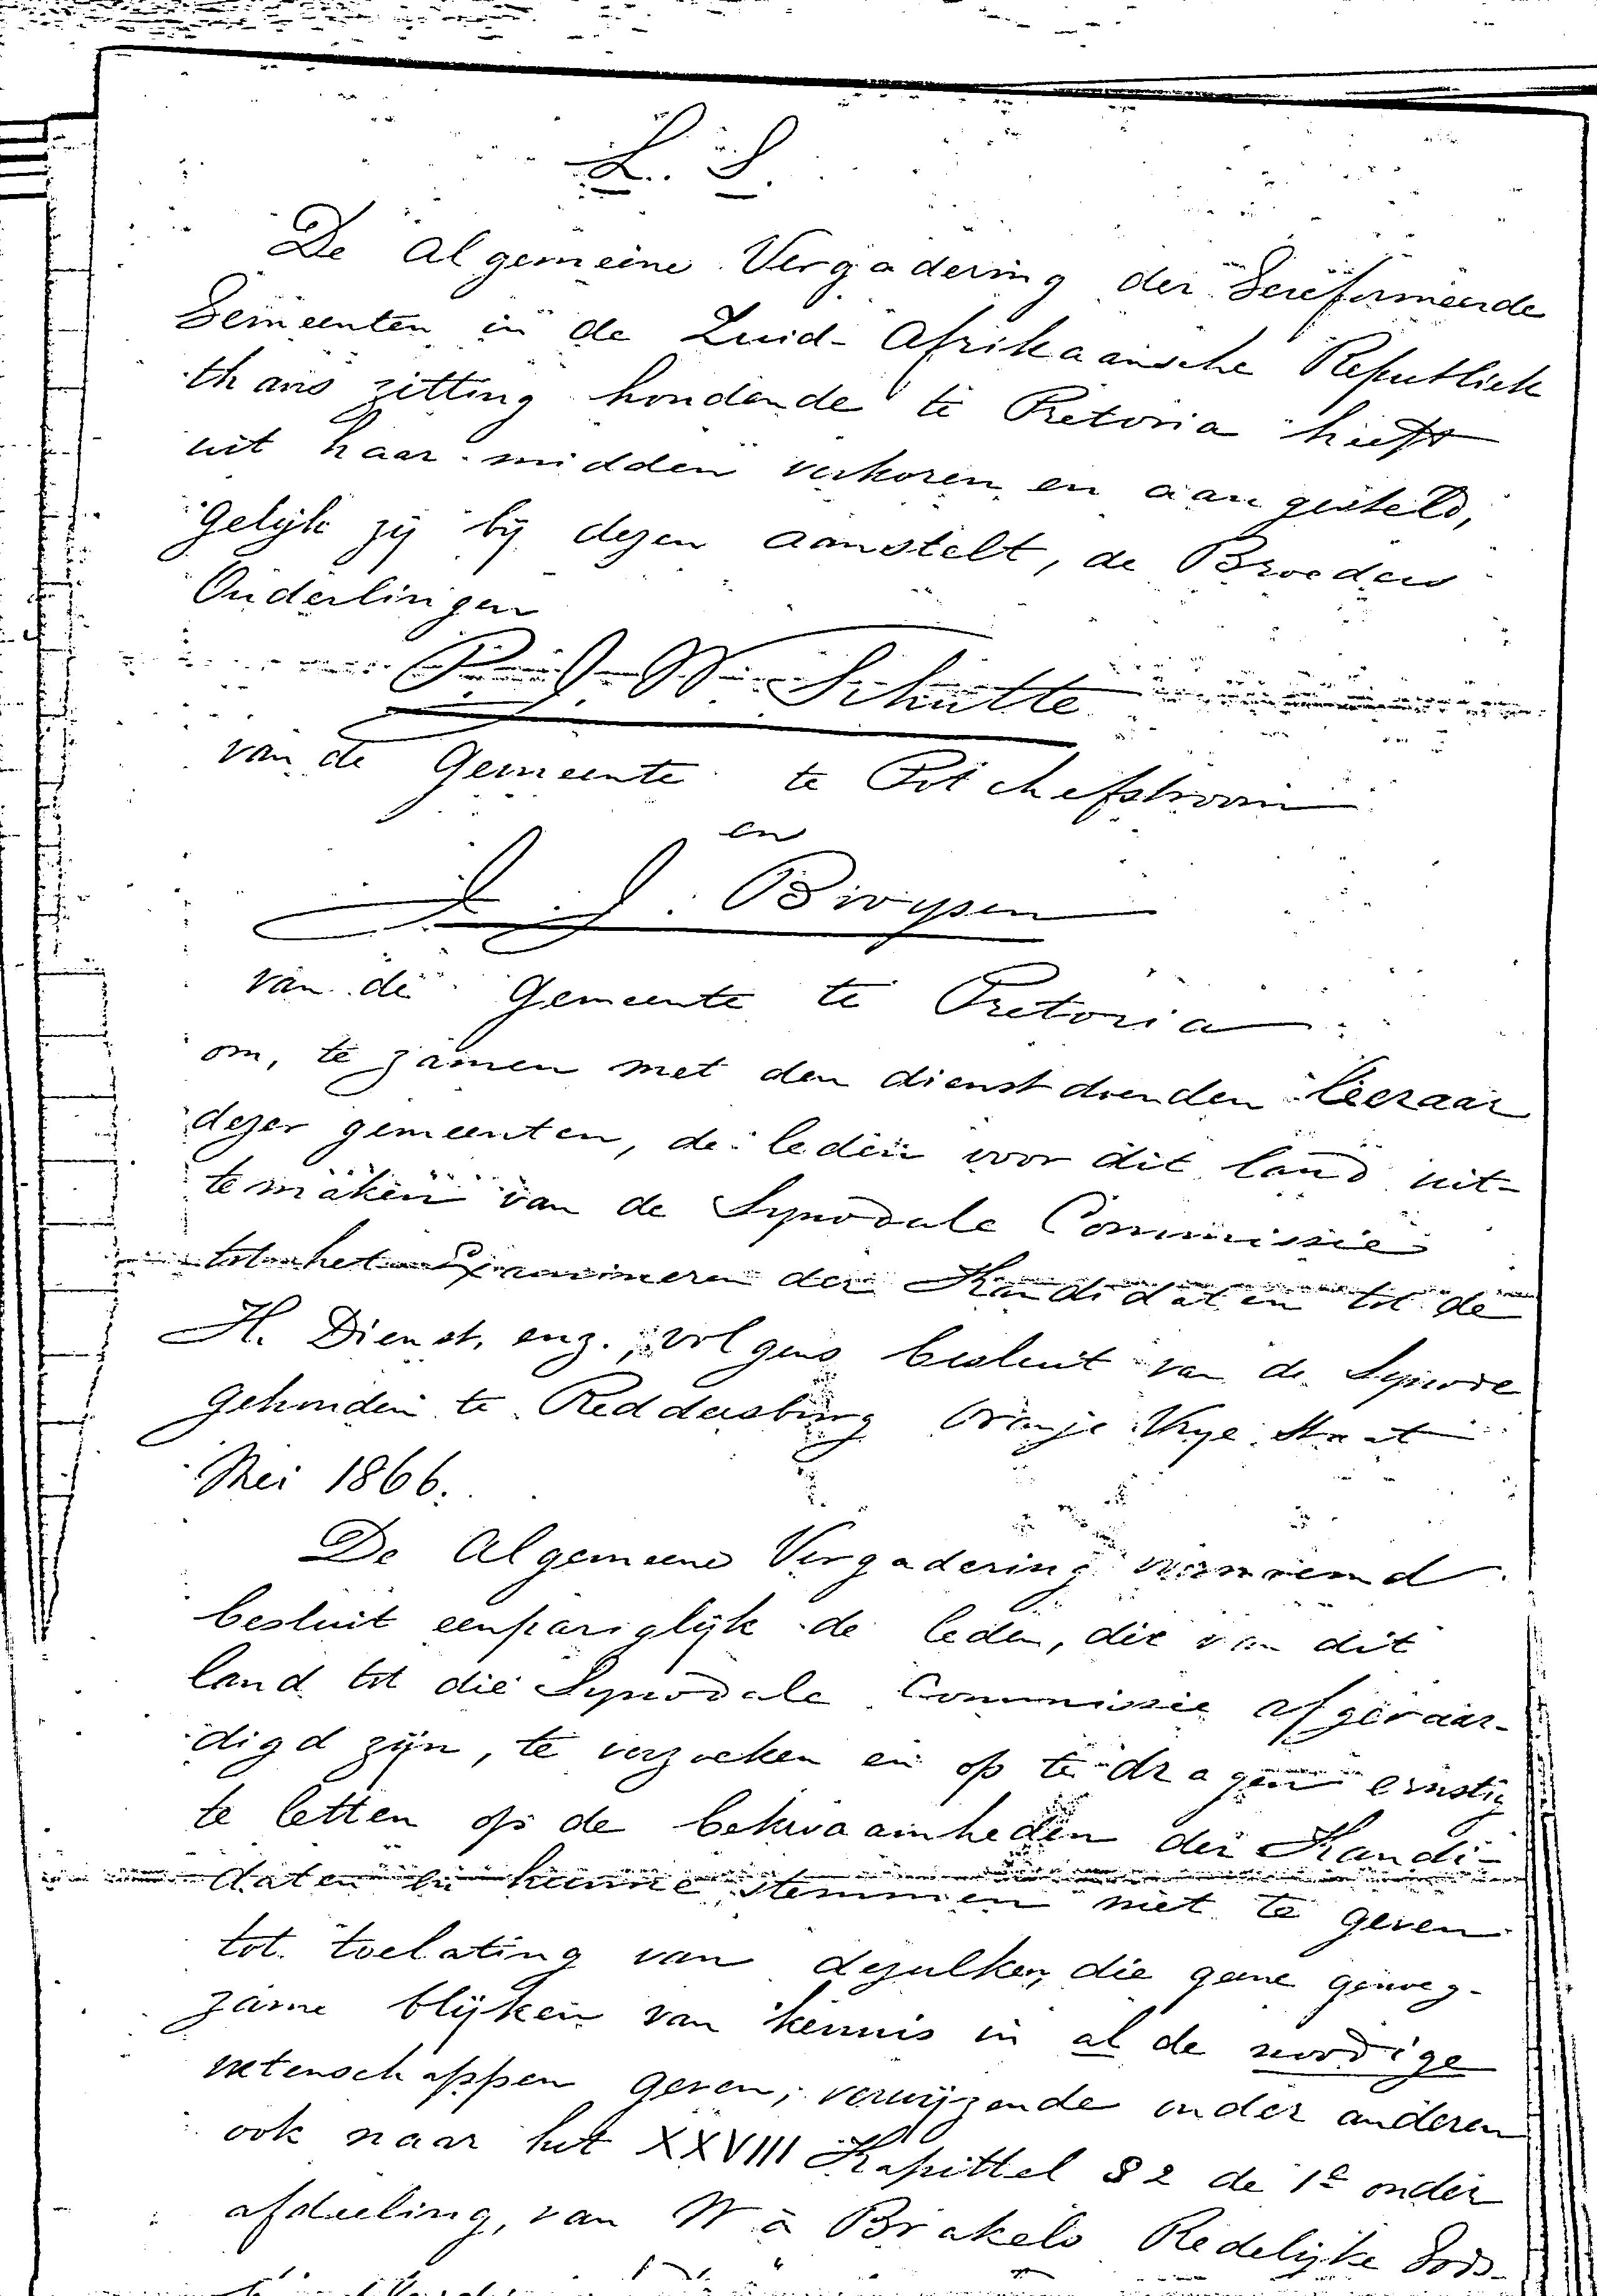 L. S.
De Algemeene Vergadering der Gereformeerde
Gemeenten in de Zuid-Afrikaansche Republiek
thans zitting houdende te Pretoria heeft
uit haar midden verkoren en aangesteld,
Gelijk zij bij dezen aanstelt, de Broeders
Ouderlingen
P. J. W. Schutte
van de Gemeente te Potchefstroom
en
J. J. Bruysen
van de Gemeente te Pretoria
om, te zamen met den dienstdoenden leeraar
dezer gemeenten, de leden voor dit land uit-
temaken van de Synodale Commissie
tot het Examineren der Kandidaten tot de
H. Dienst, enz., volgens besluit van de Synode
gehouden te Reddersburg Oranje Vrye Staat
Mei 1866.
De Algemeene Vergadering voornoemd
besluit eenpariglijk de leden, die van dit
land tot die Synodale Commissie afgevaar-
digd zijn, te verzoeken en op te dragen ernstig
te letten op de bekwaamheden der Kandi-
daten en hunne stemmen niet te geven
tot toelating van dezulken, die geene genoeg-
zame blijken van kennis in al de noodige
wetenschappen geven; verwijzende onder anderen
ook naar het XXVIII Kapittel § 2 de 1e onder
afdeeling, van W à Brakels Redelijke Gods-